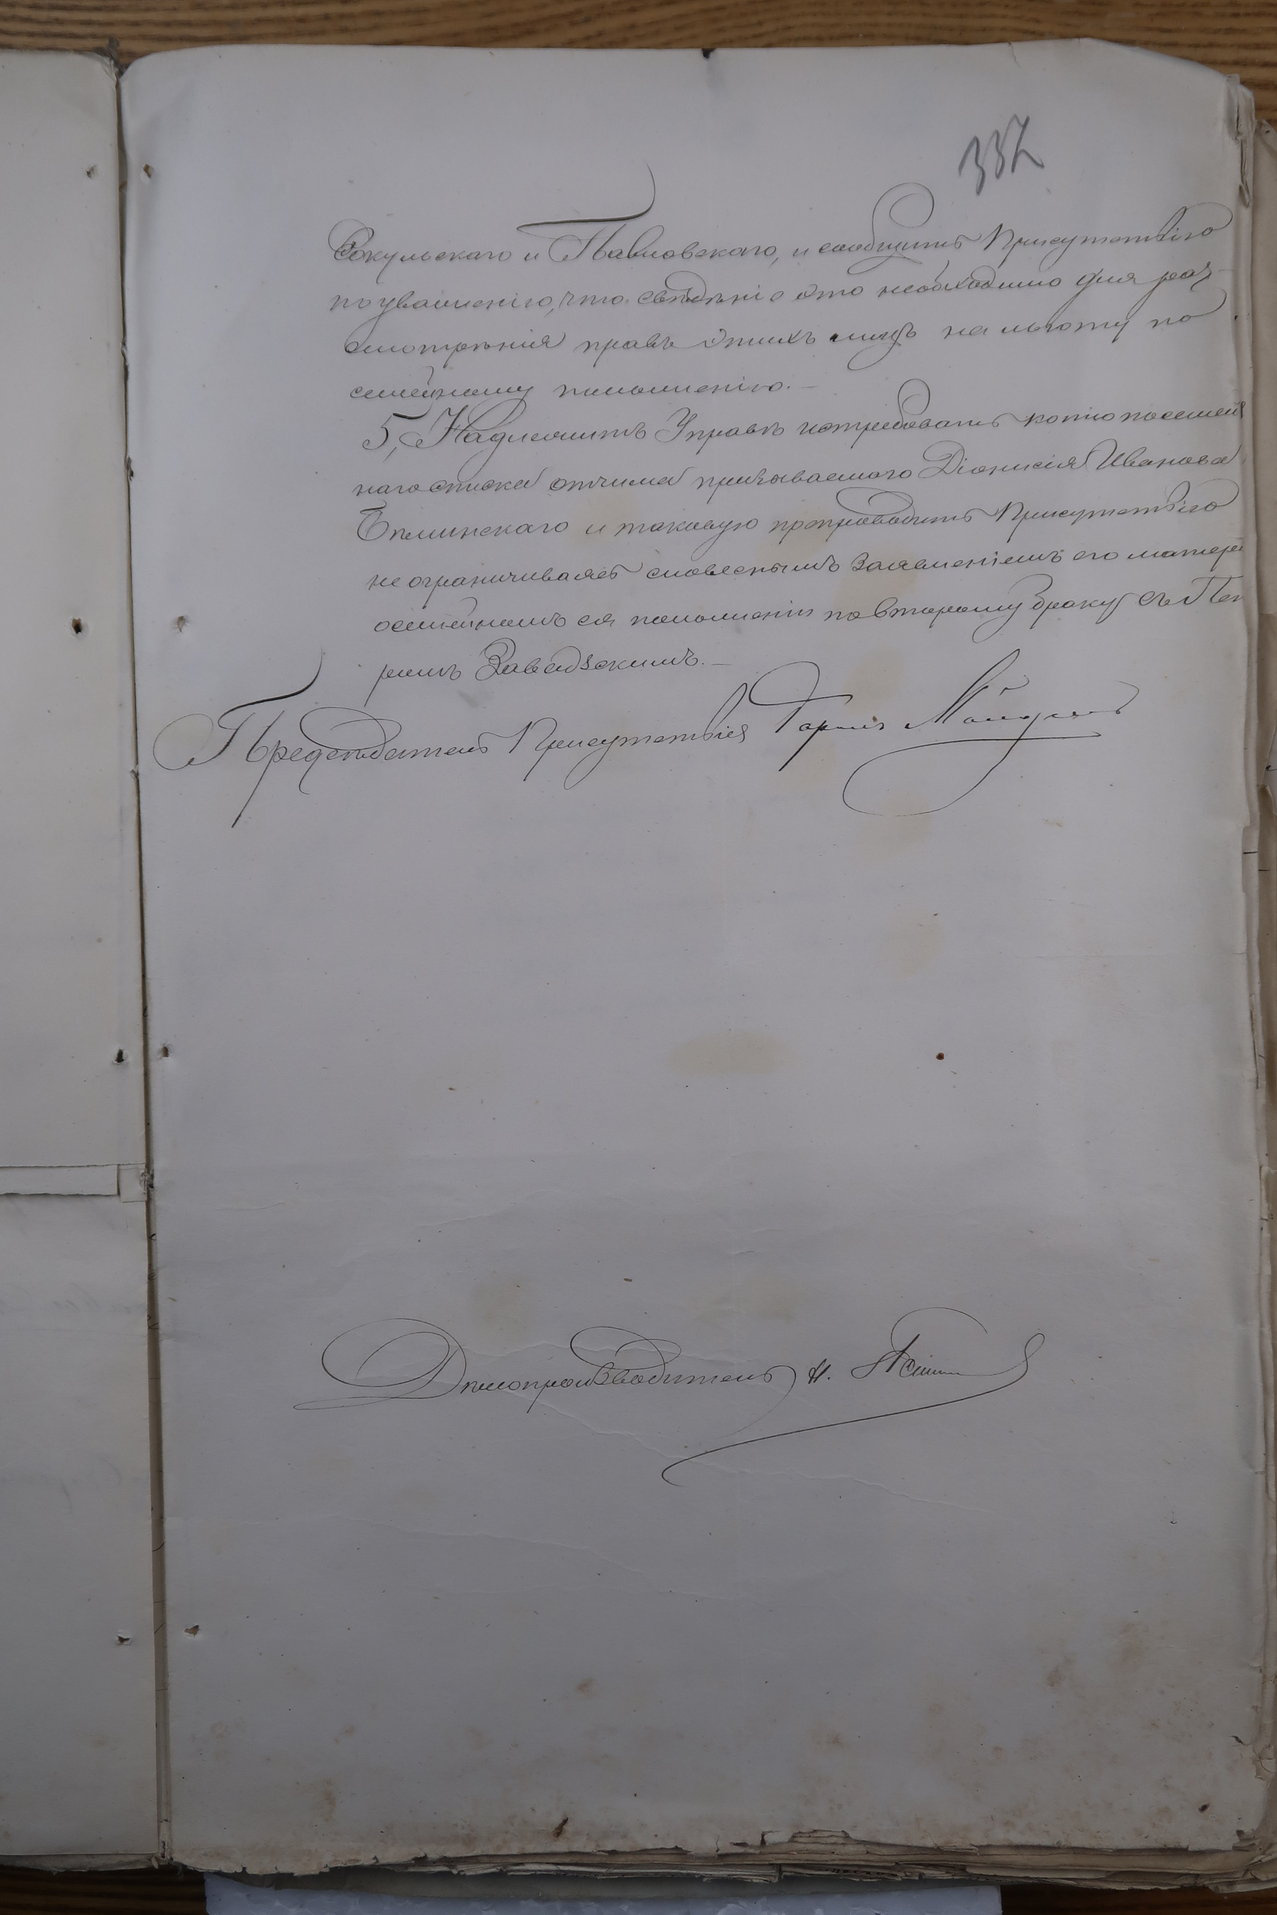 337
Сокульскаго и Павловскаго, и сообщить Присутствію
по уваженію, что свѣдѣніе это необходимо для раз-
смотрѣнія правъ этихъ лицъ на льготу по
семейному положенію. —
5, Надлежитъ Управѣ истребовать копію посемей
наго списка отчима призываемаго Діонисія Иванова
Бѣлинскаго и таковую препроводить Присутствію
не ограничиваясь словеснымъ заявленіемъ его матери
о семейномъ ея положеніи по второму браку съ Пет
ромъ Завадзскимъ. —
Предсѣдатель Присутствія
Дѣлопроизводитель Н.